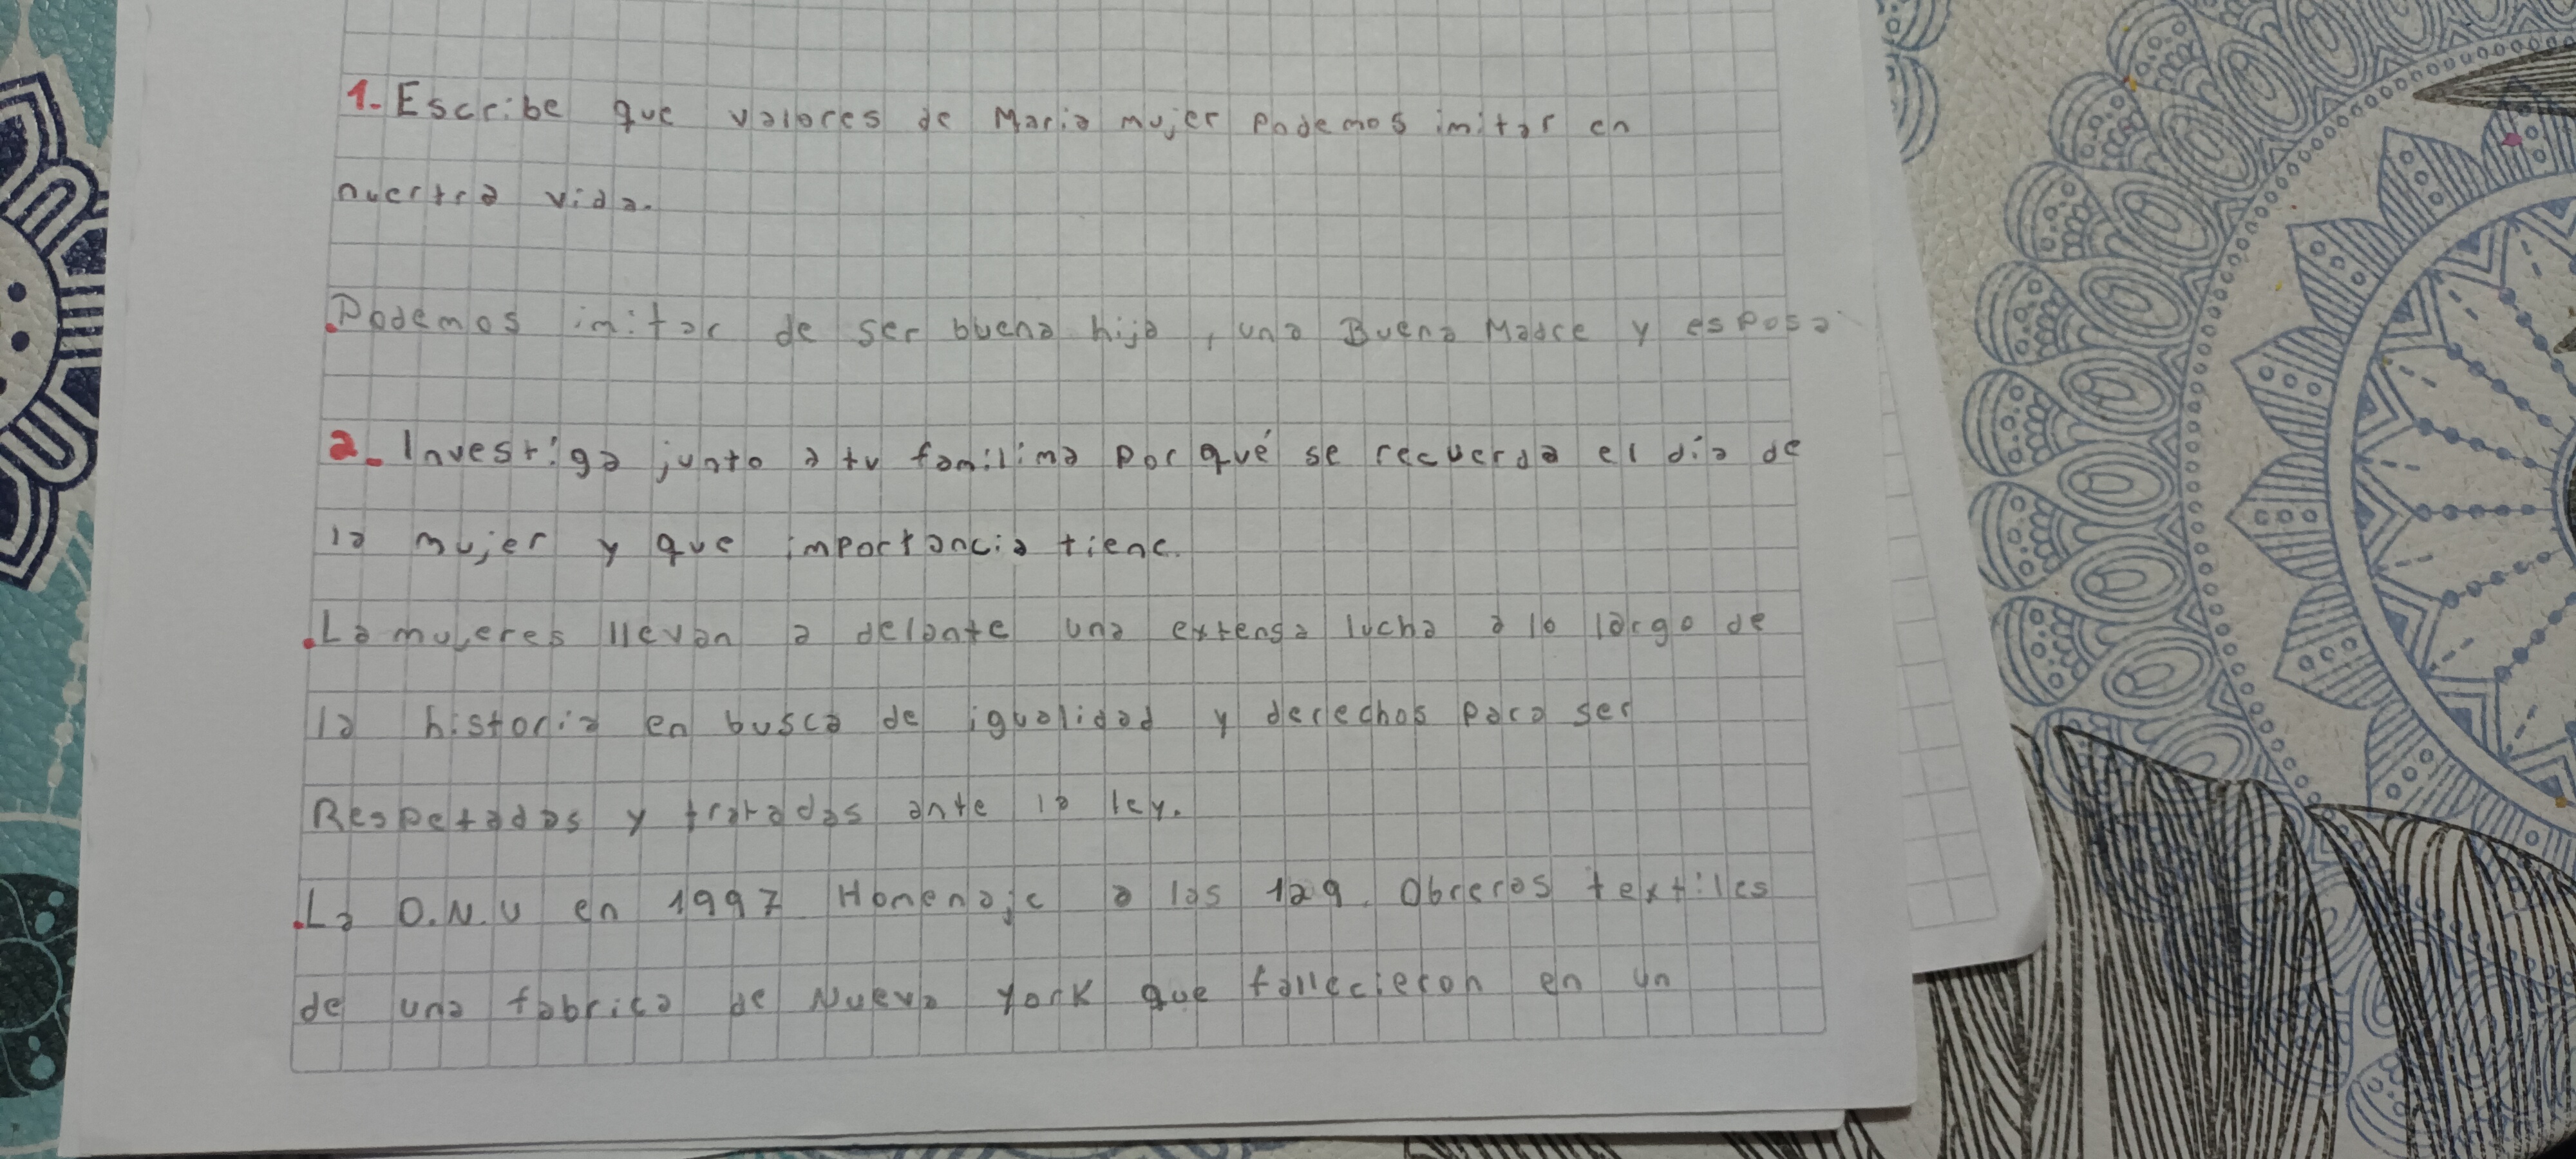 1. Escribe que valores de Maria mujer Podemos imitar en
nuertra vida.
.Podemos imitar de ser buena hija , una Buena Madre y esposa
2. Investiga junto a tu familima por qué se recuerda el dia de
la mujer y que importancia tiene.
.La muleres llevan a delante una extensa lucha a lo largo de
la historia en busca de igualidad y derechos para ser
Respetadas y tratadas ante la ley.
.La O.N.U en 1997 Homenaje a las 129. Obreras textiles
de una fabrica de Nueva york que fallecieron en un